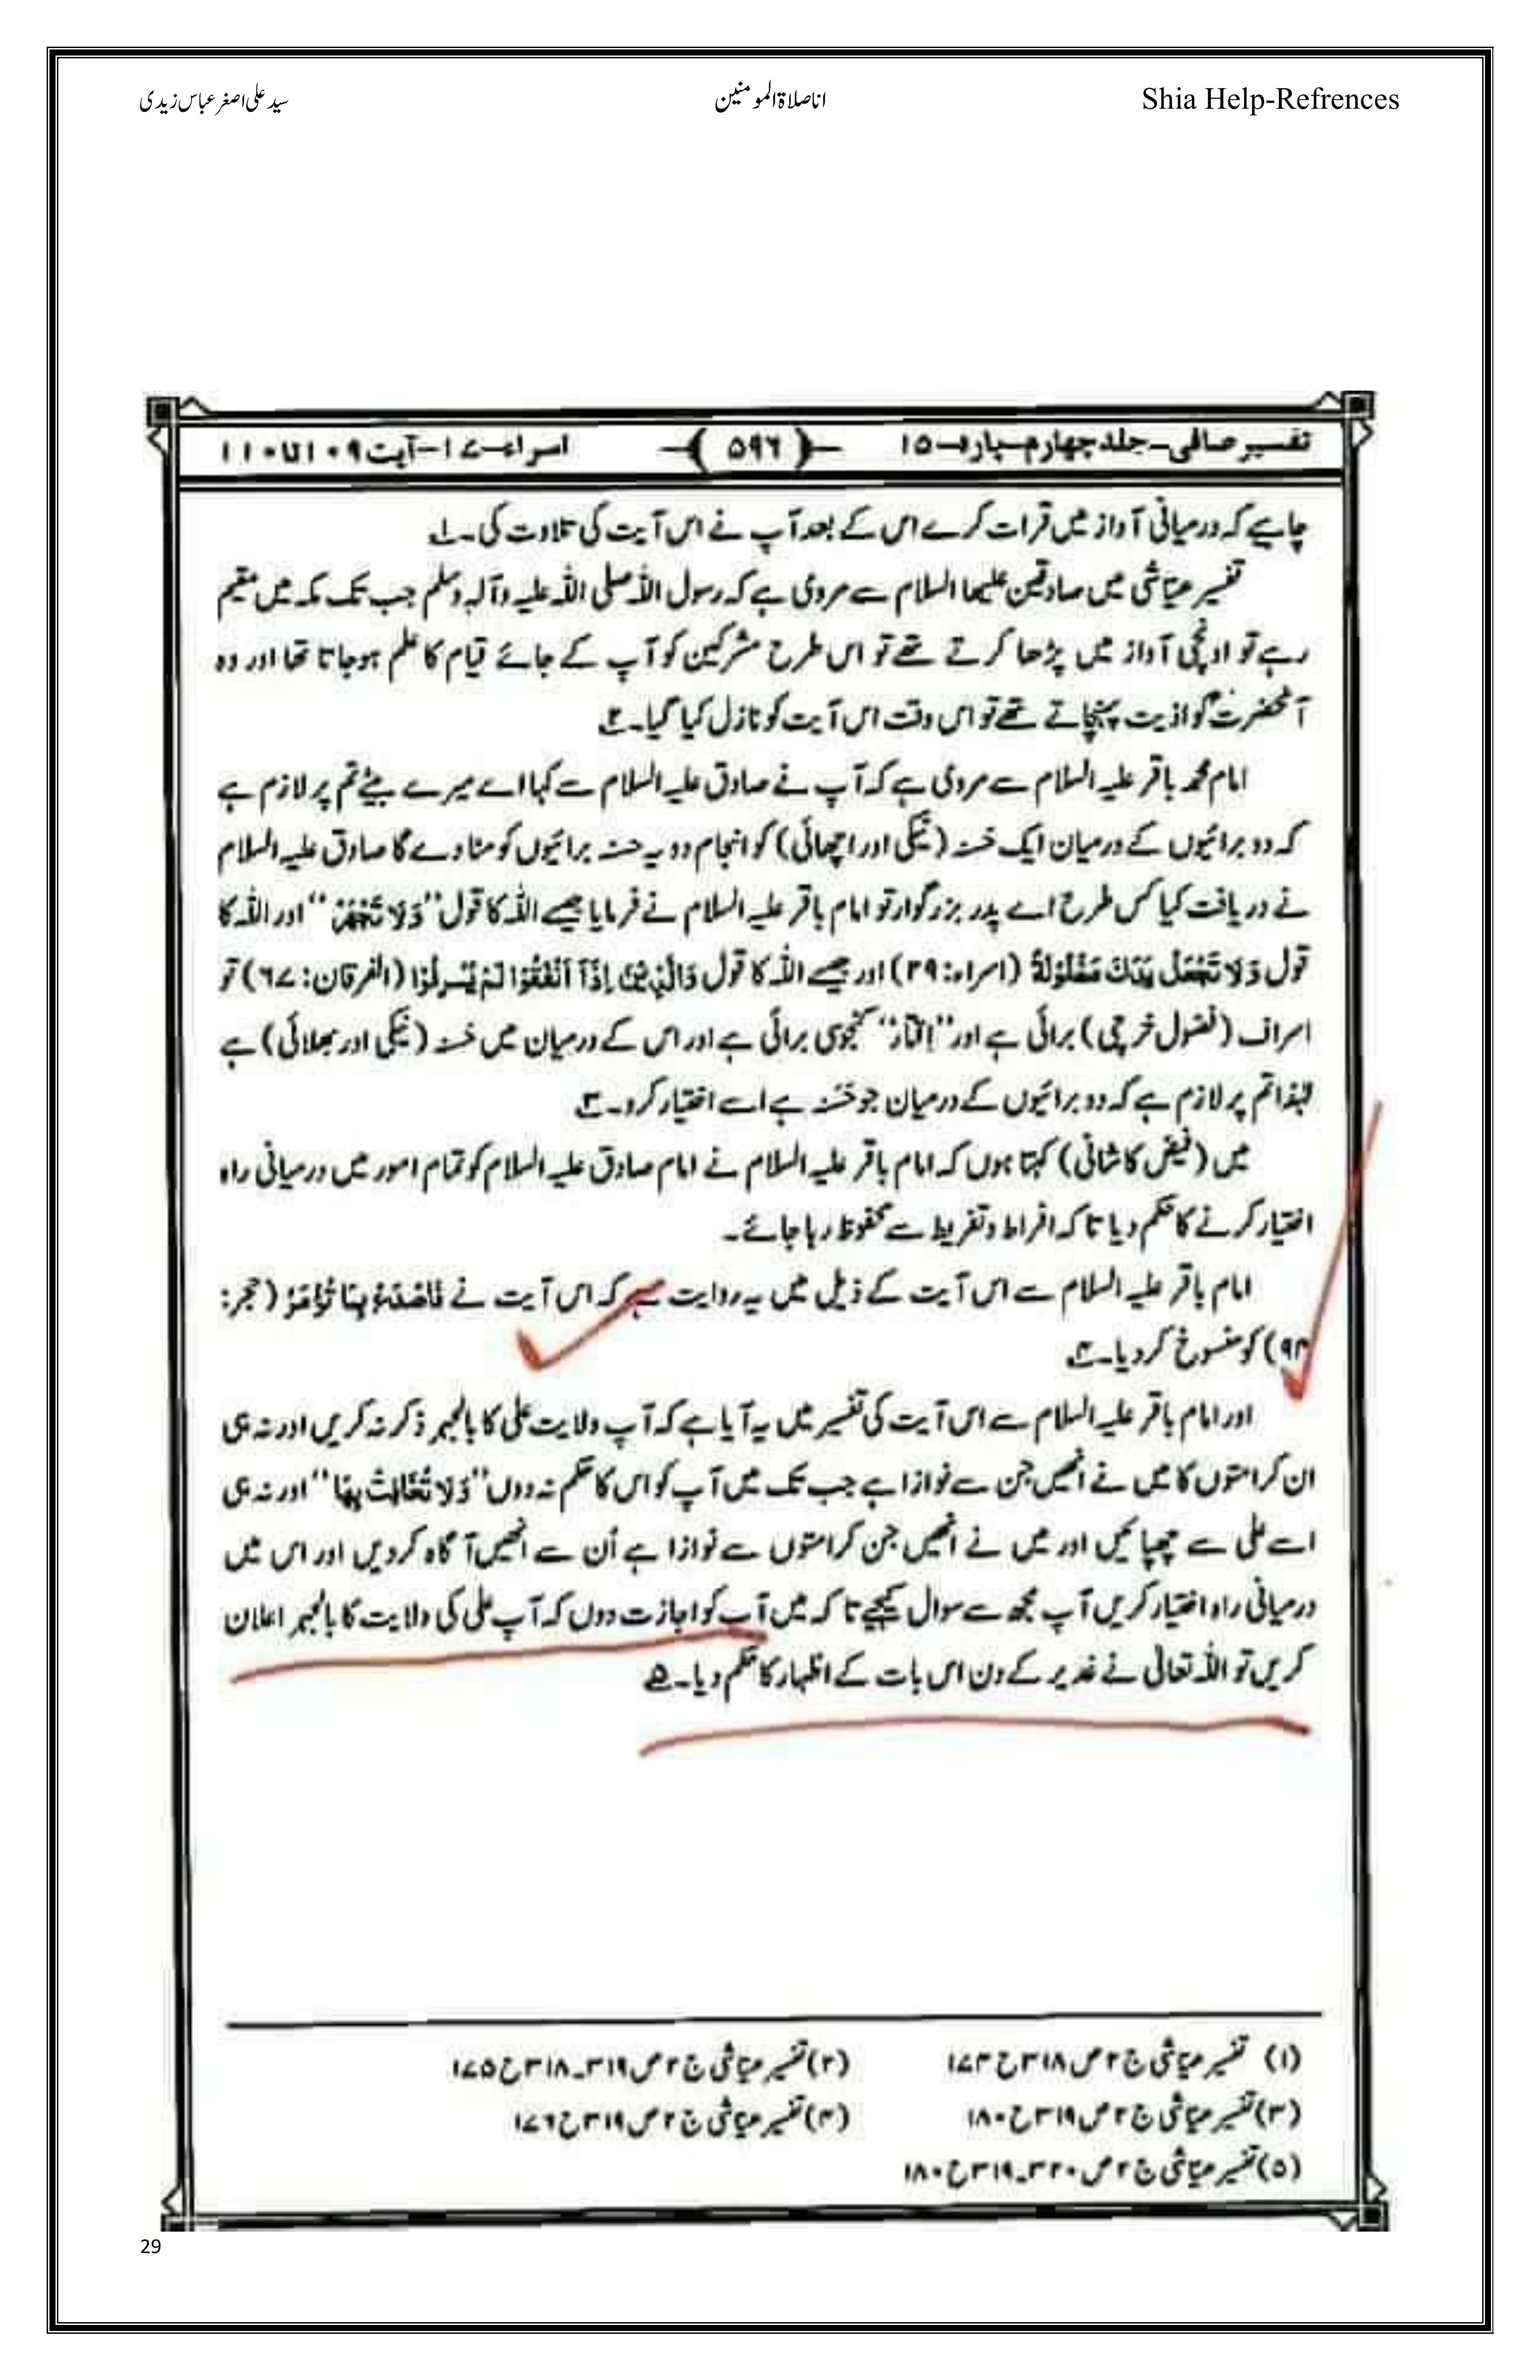 Shia Help-Refrences
اناصلاۃالمومنین
سید علی اصغر عباس زیدی
تفسیر صافی-جلد چہارم-پارہ-۱۵
﴿۵۹۶﴾
اسراء-۱۷-آیت۱۰۹تا۱۱۰
چاہیے کہ درمیانی آواز میں قرات کرے اس کے بعد آپ نے اس آیت کی تلاوت کی۔۱
تفسیر عیاشی میں صادقین علیھا السلام سے مروی ہے کہ رسول اللہ صلی اللہ علیہ وآلہ وسلم جب تک مکہ میں مقیم
رہے تو اونچی آواز میں پڑھا کرتے تھے تو اس طرح مشرکین کو آپ کے جائے قیام کا علم ہوجاتا تھا اور وہ
آنحضرتؐ کو اذیت پہنچاتے تھے تو اس وقت اس آیت کو نازل کیا گیا۔۲
امام محمد باقر علیہ السلام سے مروی ہے کہ آپ نے صادق علیہ السلام سے کہا اے میرے بیٹے تم پر لازم ہے
کہ دو برائیوں کے درمیان ایک حَسنہ (نیکی اور اچھائی) کو انجام دو یہ حسنہ برائیوں کو مٹا دے گا صادق علیہ السلام
نے دریافت کیا کس طرح اے پدر بزرگوار تو امام باقر علیہ السلام نے فرمایا جیسے اللہ کا قول ''وَلَا تَجْهَرْ'' اور اللہ کا
قول وَلَا تَجْعَلْ يَدَكَ مَغْلُوْلَةً (اسراء:۲۹) اور جیسے اللہ کا قول وَالَّذِيْنَ اِذَآ اَنْفَقُوْا لَمْ يُسْرِفُوْا (الفرقان:۶۷) تو
اسراف (فضول خرچی) برائی ہے اور ''اِقتار'' کنجوسی برائی ہے اور اس کے درمیان میں حَسنہ (نیکی اور بھلائی) ہے
لہٰذا تم پر لازم ہے کہ دو برائیوں کے درمیان جو حَسَنہ ہے اسے اختیار کرو۔۳
میں (فیض کاشانی) کہتا ہوں کہ امام باقر علیہ السلام نے امام صادق علیہ السلام کو تمام امور میں درمیانی راہ
اختیار کرنے کا حکم دیا تا کہ افراط و تفریط سے محفوظ رہا جائے۔
امام باقر علیہ السلام سے اس آیت کے ذیل میں یہ روایت ہے کہ اس آیت نے فَاصْدَعْ بِمَا تُؤْمَرُ (حجر:
۹۴) کو منسوخ کر دیا۔۴
اور امام باقر علیہ السلام سے اس آیت کی تفسیر میں یہ آیا ہے کہ آپ ولایت علی کا بالجہر ذکر نہ کریں اور نہ ہی
ان کرامتوں کا میں نے انھیں جن سے نوازا ہے جب تک میں آپ کو اس کا حکم نہ دوں ''وَلَا تُخَافِتْ بِهَا'' اور نہ ہی
اسے علی سے چھپائیں اور میں نے انھیں جن کرامتوں سے نوازا ہے اُن سے انھیں آگاہ کر دیں اور اس میں
درمیانی راہ اختیار کریں آپ مجھ سے سوال کیجیے تا کہ میں آپ کو اجازت دوں کہ آپ علی کی ولایت کا بالجہر اعلان
کریں تو اللہ تعالیٰ نے غدیر کے دن اس بات کے اظہار کا حکم دیا۔۵
(۱) تفسیر عیاشی ج۲ ص۳۱۸ ح۱۷۳
(۲) تفسیر عیاشی ج۲ ص۳۱۹۔۳۱۸ ح۱۷۵
(۳) تفسیر عیاشی ج۲ ص۳۱۹ ح۱۸۰
(۴) تفسیر عیاشی ج۲ ص۳۱۹ ح۱۷۶
(۵) تفسیر عیاشی ج۲ ص۳۲۰۔۳۱۹ ح۱۸۰
29